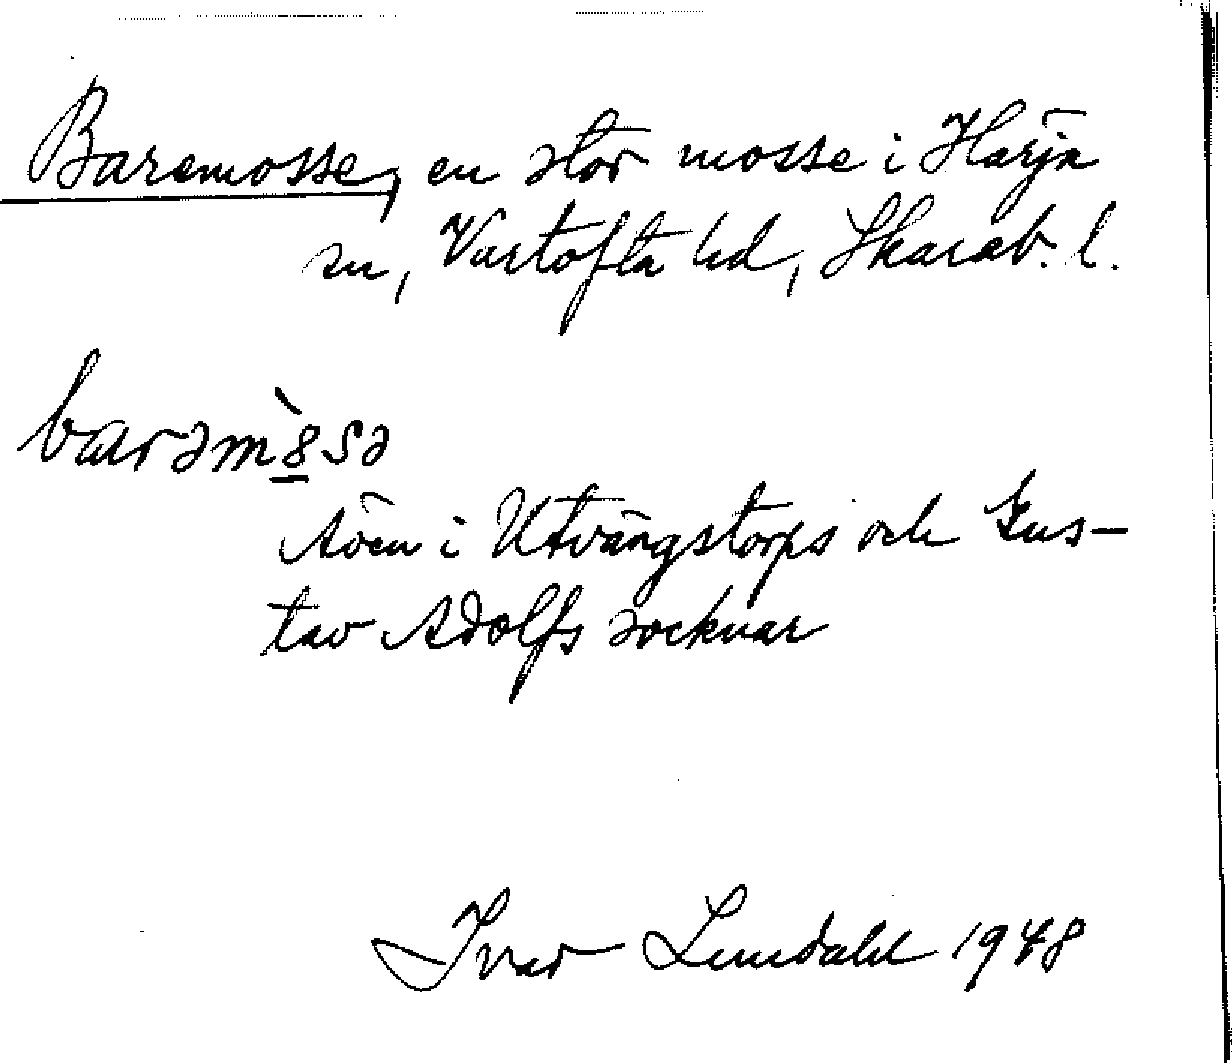 Baremosse, en stor mosse i Härja
sn, Vartofta hd, Skarab. l.
barəm`8sə
Även i Utvängstorps och Gus-
tav Adolfs socknar
Ivar Lundahl 1948